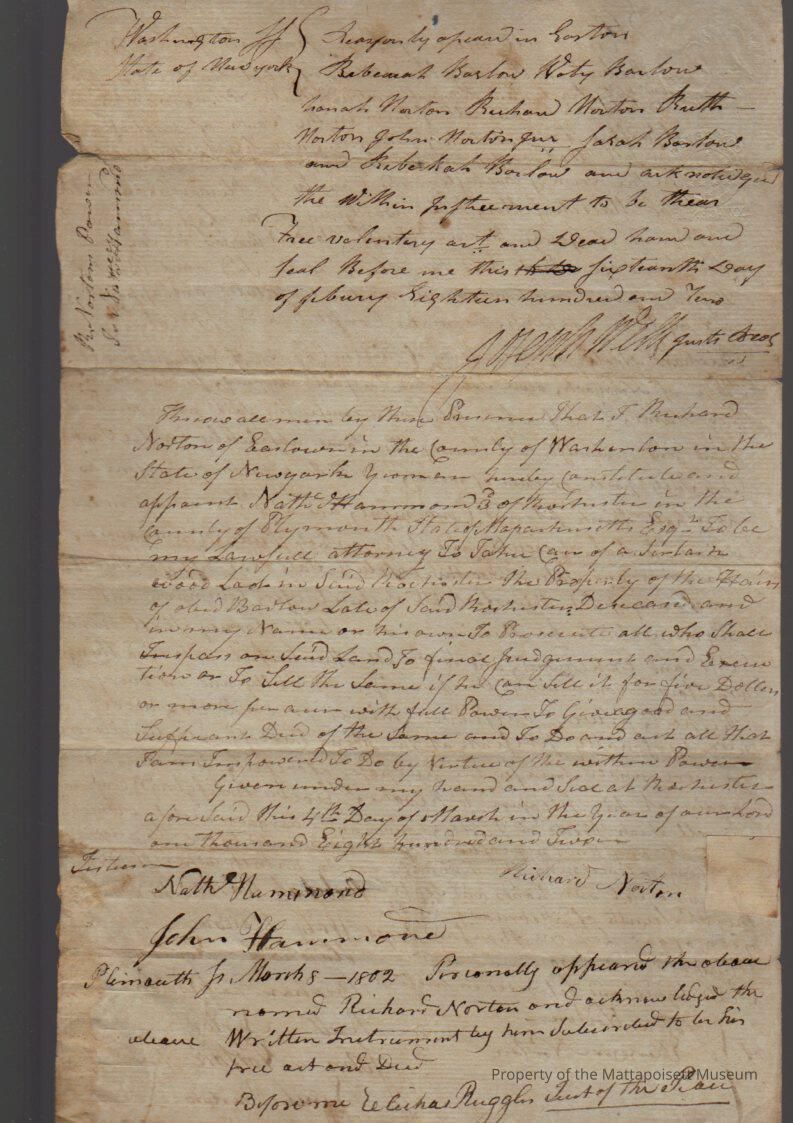 Washington ss
State of Newyork
Parsonly apear in Easton
Rebecah Barlow Woty Barlow
hanah Norton Richard Norton Ruth
Norton John Norton jur Sarah Barlow
and Rebekah Barlow and acknolidged
the Within Instrement to be thear
Free voluntery act and Dead hand and
seal Before me this sixteenth Day
of febury Eighteen hundred and Two
Joseph Wells Justs Peas
Rd Nortons Power
to Nathl Hammond
Know all men by these Presence That I Richard
Norton of Eastown in the County of Washenton in the
State of Newyorke Yeoman hereby Constitute and
appoint Nathl Hammond 3d of Rochester in the
County of Plymouth State of Massachusetts Esqr To be
my Lawfull attorney To Take Care of a Sertain
Wood Lott in Said Rochester the Property of the Hairs
of obed Barlow Late of Said Rochester Deseased and
in my Name or his own To Prosecute all who Shall
Trespass on Said Land To final Judgement and Execu
tion or To Sell the Same if he Can Sell it for five Dollers
or more per acre with full Power To Give a good and
Suffient Deed of the Same and To Do and act all that
I am Impowered To Do by Virtue of the within Power
Given under my hand and Seal at Rochester
afore Said this 4th Day of March in the Year of our Lord
one thousand Eight hundred and Two
Test
Richard Norton
Nathl Hammond
John Hammond
Plimouth ss March 8 — 1802 Personally appeared the above
named Richard Norton and acknowledged the
above Written Instrument by him Subscribed to be his
free act and Deed
Before me Elisha Ruggles Just of the Peace
Property of the Mattapoisett Museum